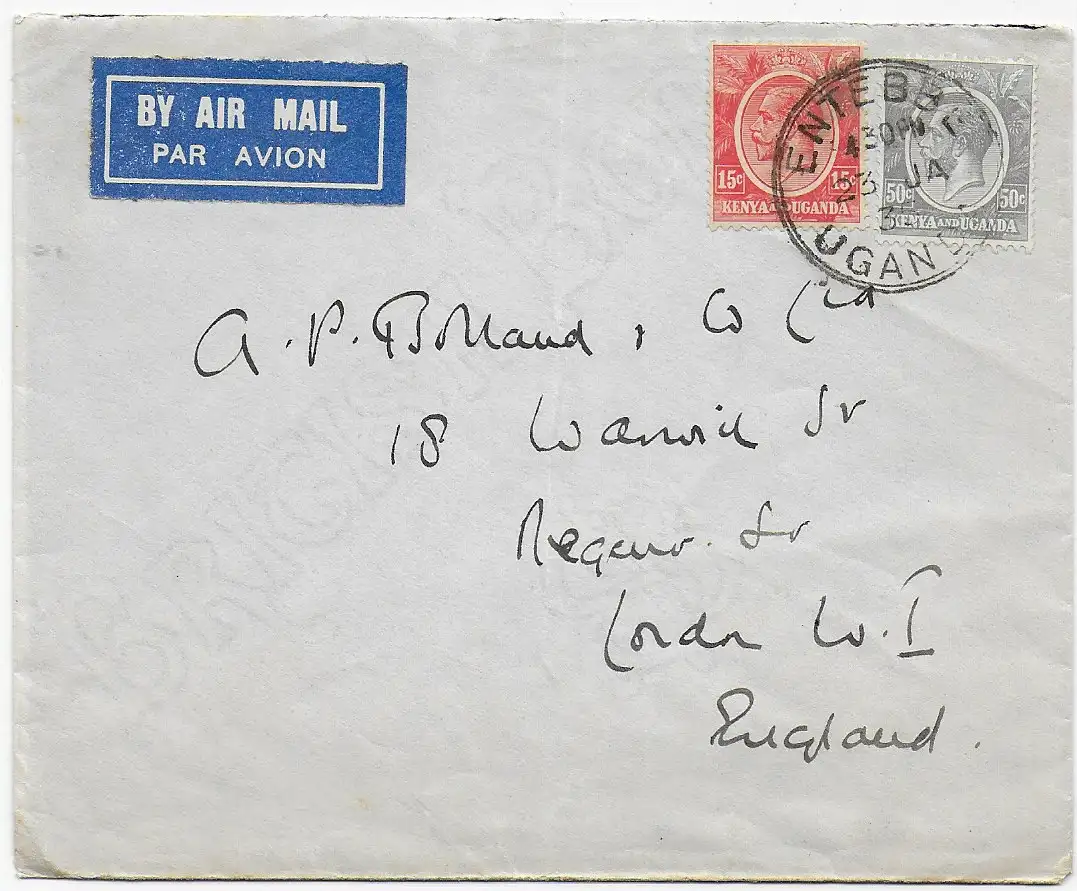 BY AIR MAIL
PAR AVION
15c 15c
KENYA AND UGANDA
50c 50c
KENYA AND UGANDA
ENTEBB
4 30 PM
23 JA
3
UGAN
A. P. Bolland & Co Ltd
18 Warwick St
Regent St
London W. I
England.